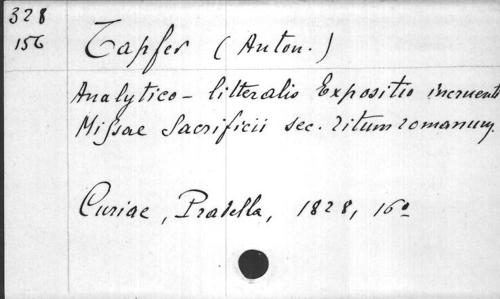 328
156
Tapfer (Anton.)
Analytico - litteralis Expositio incruenti
Missae Sacrificii sec. ritum romanum.
Curiae, Pradella, 1828, 16º